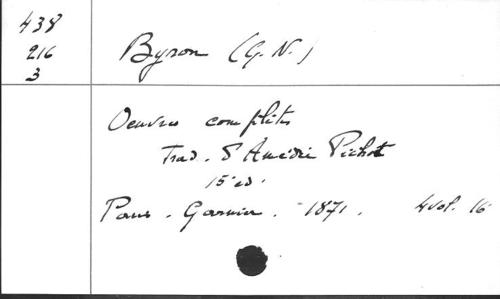 438
216
3
Byron (G. N.)
Oeuvres complètes
Trad. d'Amédée Pichot
15e ed.
Paris. Garnier. 1871. 4 vol. 16